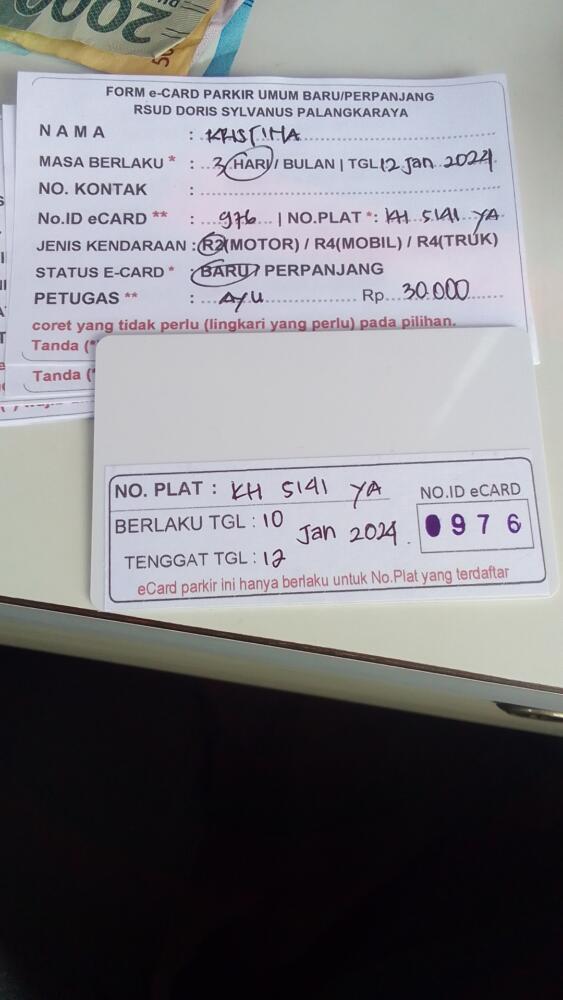 2000
FORM e-CARD PARKIR UMUM BARU/PERPANJANG
RSUD DORIS SYLVANUS PALANGKARAYA
NAMA : KHSTINA
MASA BERLAKU * : 3 HARI / BULAN | TGL 12 Jan 2024
NO. KONTAK :
No.ID eCARD ** : 976 | NO.PLAT *: KH 5141 YA
JENIS KENDARAAN : R2(MOTOR) / R4(MOBIL) / R4(TRUK)
STATUS E-CARD * : BARU / PERPANJANG
PETUGAS ** : AYU Rp. 30.000
coret yang tidak perlu (lingkari yang perlu) pada pilihan.
Tanda (*
Tanda (*
NO. PLAT : KH 5141 YA
NO.ID eCARD
BERLAKU TGL : 10 Jan 2024.
0976
TENGGAT TGL : 12
eCard parkir ini hanya berlaku untuk No.Plat yang terdaftar